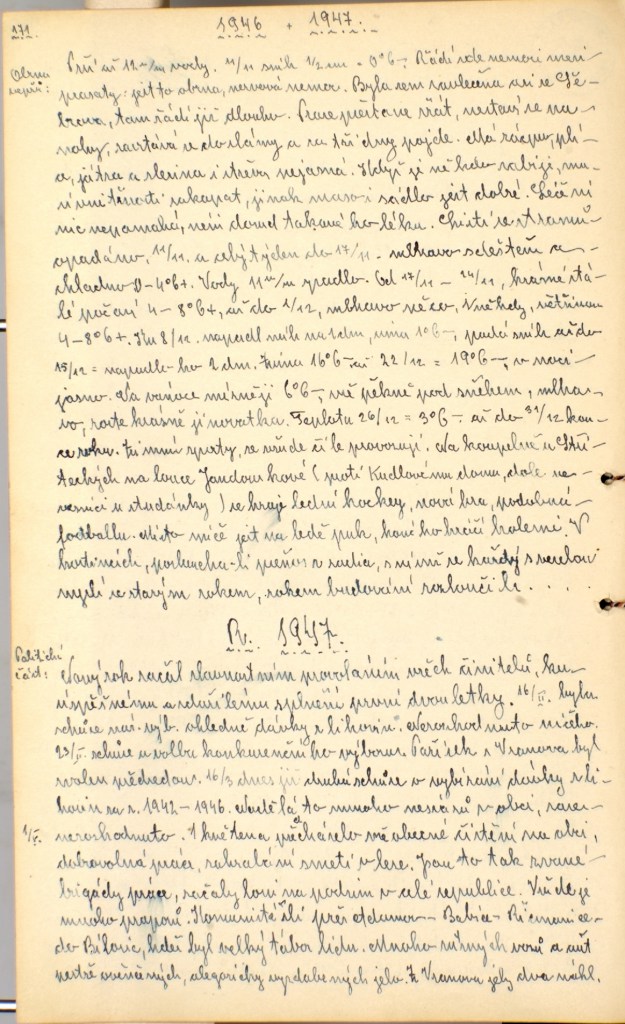 171.
1946 + 1947.
Obrna vepřů:
Prší až 12 m/m vody. 11/11 sníh 1/2 cm = 0°C-. Řádí zde nemoc mezi
prasaty: jest to obrna, nervová nemoc. Byla sem zavlečena asi ze Stě-
brova, tam řádí již dlouho. Prase přestane žrát, nestaví se na
nohy, zavrtává se do slámy a za tři dny pojde. Má
a, játra a slezina i střeva nejasná. Když je někdo zabije, mu-
sí vnitřnosti zakopat, jinak maso i sádlo jest dobré. Léčení
nic nepomáhá, není dosud takového léku. Listí se stromů
opadáno, 11/11. a celý týden do 17/11 - mlhavo s deštěm a
chladno 0-4°C+. Vody 11 m/m spadlo. Od 17/11 - 24/11, krásné stá-
lé počasí 4-8°C+, až do 1/12, mlhavo něco, někdy, větřínou
4-8°C+. Dne 8/12. napadl sníh na 1 dm, zima 1°C-, padá sníh až do
15/12 = napadlo ho 2 dm. Zima 16°C- až 22/12 = 19°C-, v noci
jasno. Na vánoce mírněji 6°C-, vše pěkně pod sněhem, mlha-
vo, roste krásně jinovatka. Teplota 26/12 = 3°C- až do 31/12 kon-
ce roku. Zimní sporty, se všude čile provozují. Na koupelně u Stří-
teckých na louce Jandourkové (proti Kudlovému domu, dole ve
vesnici u studánky) se hraje lední hockey, nová hra, podobná
footballu. Místo míče jest na ledě puk, honí ho hráči holemi. V
hostincích, poslouchá-li přenos z radia, s nímž se každý s veselou
myslí se starým rokem, rokem budování rozloučili . . . .
R. 1947.
Politická část:
Nový rok začal slavnostním provoláním všech činitelů, ku
úspěšnému a zdařilému splnění první dvouletky. 16/II. byla
schůze nár. výb. ohledně dávky z lihovin. Nerozhodnuto ničeho.
23/II. schůze a volba konkurenčního výboru. Pařízek z Vranova byl
zvolen předsedou. 16/3 dnes již druhá schůze o vybírání dávky z li-
hovin za r. 1942-1946. Nadělá to mnoho nesvárů v obci, zase
nerozhodnuto.
1/V.
1 května předcházelo vše obecné čistění na obci,
dobrovolná práce, zahrabání smetí v lese. Jsou to tak zvané
brigády práce, začaly loni na podzim v celé republice. Všude je
mnoho praporů. Komunisté šli přes Adamov - Babice - Řícmanice -
do Bílovic, kdež byl velký tábor lidu. Mnoho různých vozů a aut
pestře ověnčených, alegoricky vyzdobených jelo. Z Vranova jely dva nákl.